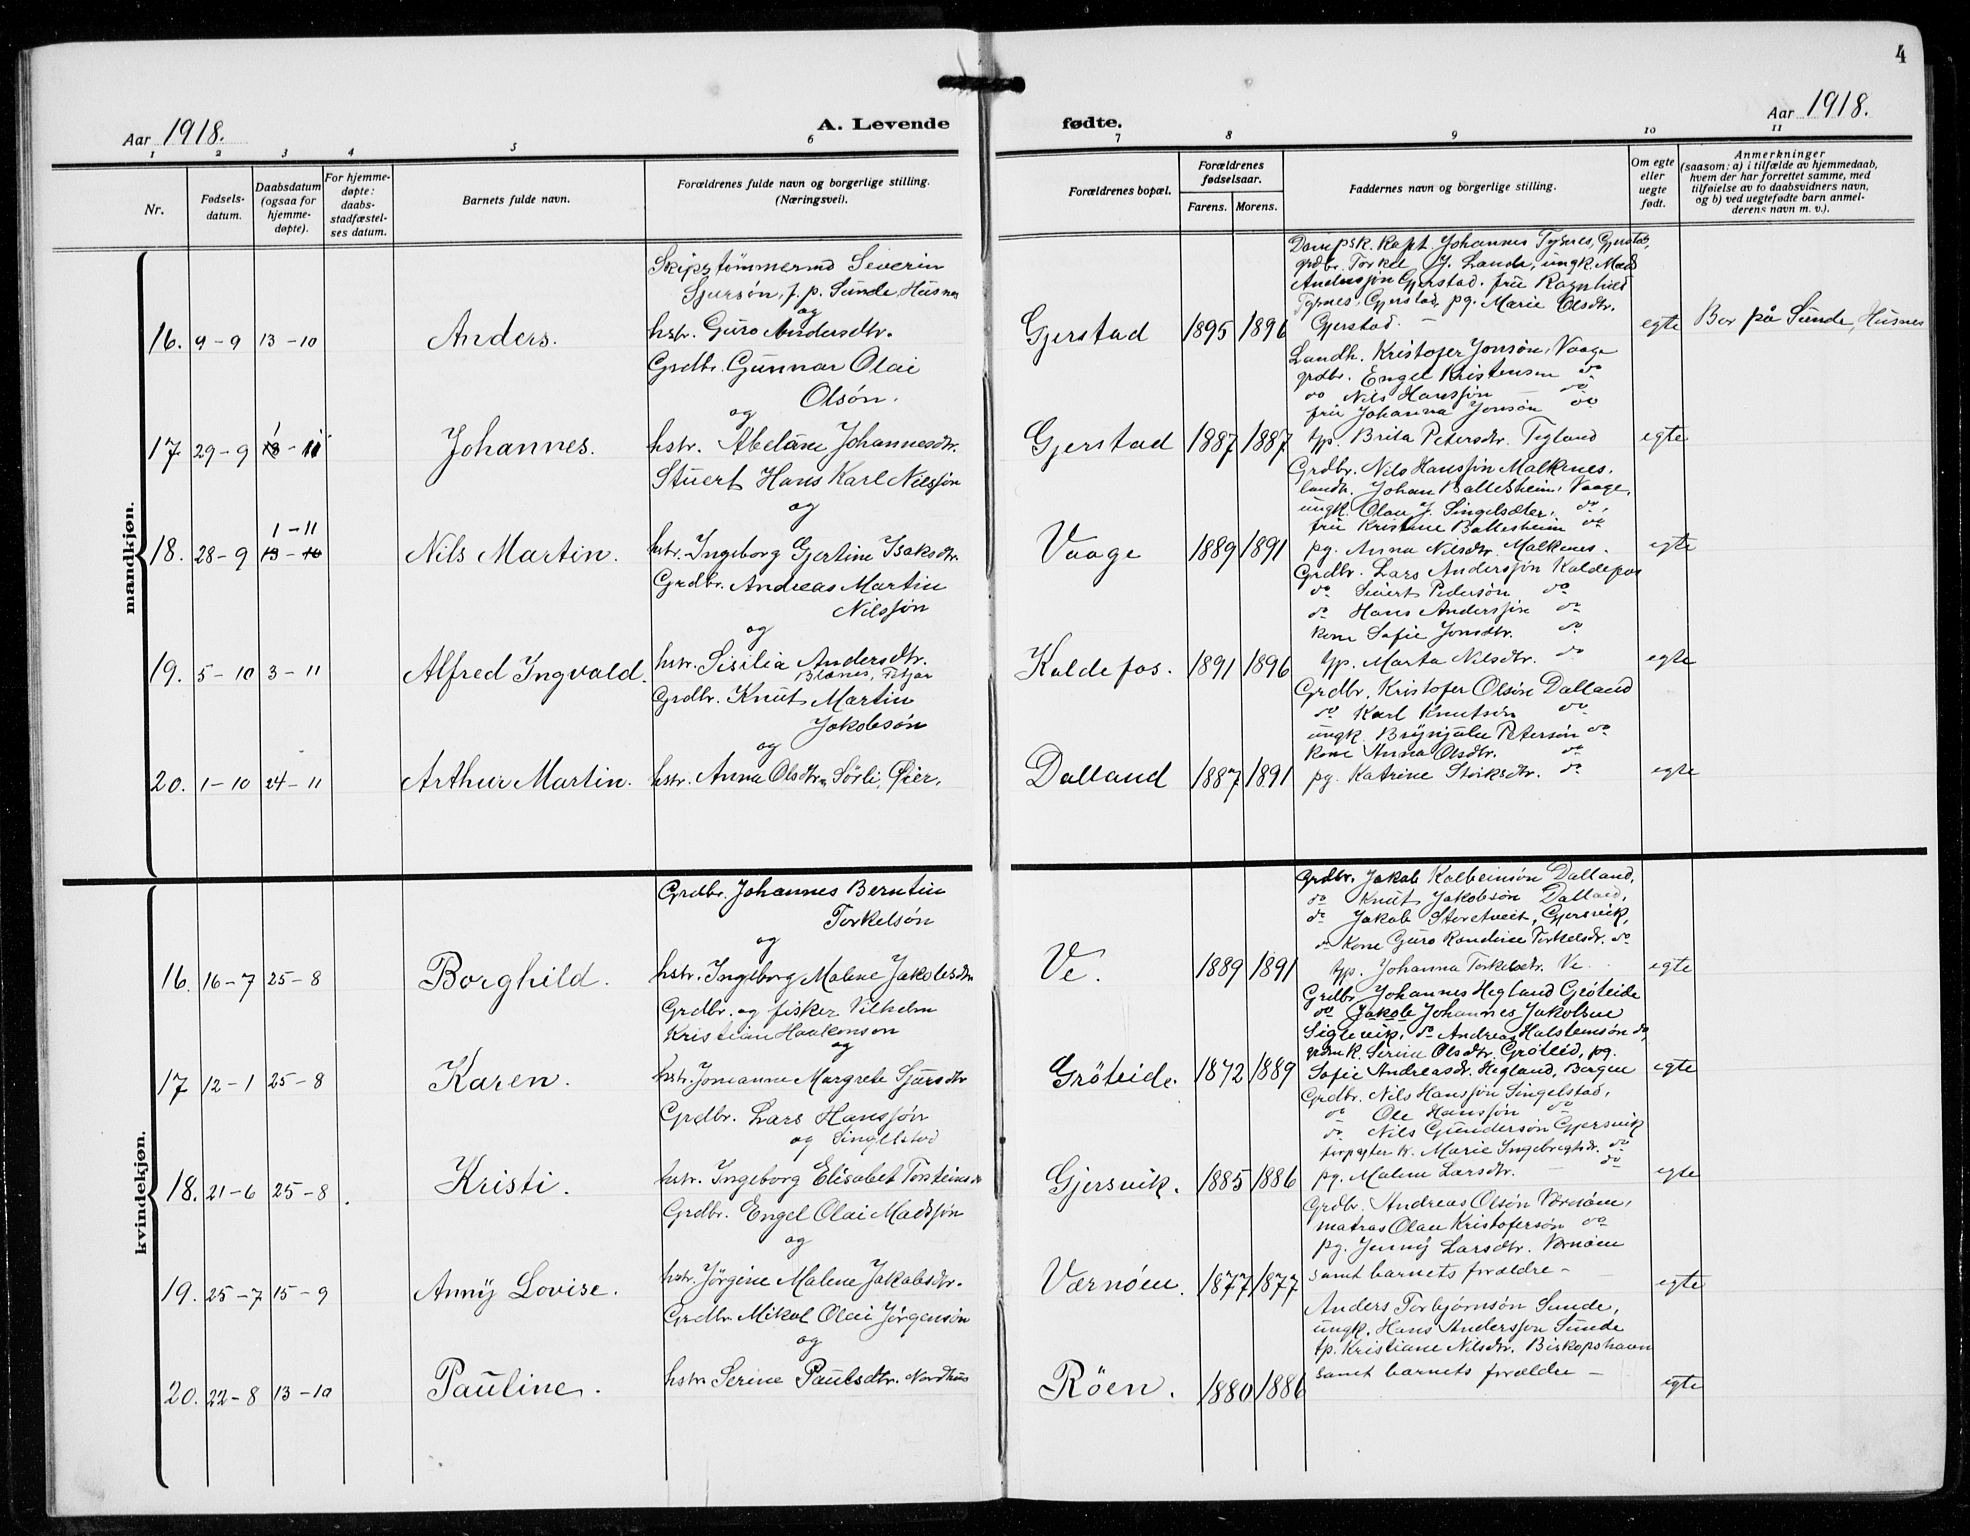 4
Aar 1918. A. Levende fødte. Aar 1918.
1 2 3 4 5 6 7 8 9 10 11
Nr.
Fødsels-
datum.
Daabsdatum
(ogsaa for
hjemme-
døpte).
For hjemme-
døpte:
daabs-
stadfæstel-
ses datum.
Barnets fulde navn.
Forældrenes fulde navn og borgerlige stilling.
(Næringsvei).
Forældrenes bopæl.
Forældrenes
fødselsaar.
Farens. Morens.
Faddernes navn og borgerlige stilling.
Om egte
eller
uegte
født.
Anmerkninger
(saasom: a) i tilfælde av hjemmedaab,
hvem der har forrettet samme, med
tilføielse av to daabsvidners navn,
og b) ved uegtefødte barn anmel-
derens navn m. v.).
mandkjøn.
16. 9-9 13-10 Anders.
Skipstømmermd Severin
Sjursøn, f. p. Sunde, Husnes
og
hstr. Guro Andersdtr.
Gjerstad 1895 1896
Dampsk. Kapt. Johannes Tysnes, Gjerstad,
grdbr. Torkel J. Lande, ungk. Mads
Anderssøn Gjerstad. frü Ragnhild
Tysnes, Gjerstad, pg. Marie Olsdtr.
Gjerstad. —
egte Bor på Sunde, Husnes
17. 29-9 Johannes.
Grdbr. Gunnar Olai
Olsøn.
og
hstr. Johannesdtr.
Gjerstad 1887 1887
Landh. Kristofer Jonsøn, Vaage
grdbr. Engel Kristensen do
do Nils Hanssøn — do
frü Johanna Jonsøn do
tp. Brita Petersdtr. Tegland
egte
18. 28-9 1-11 13-10 Nils Martin.
Stuert Hans Karl Nilssøn
og
hstr. Ingeborg Gertine Isaksdtr.
Vaage 1889 1891
Grdbr. Nils Hanssøn Malkenes.
landh. Johan Ballesheim, Vaage,
ungk. Olav J. Singelsæter, do,
frü Kristine Ballesheim do
pg. Anna Nilsdtr. Malkenes.
egte
19. 5-10 3-11 Alfred Ingvald.
Grdbr. Andreas Martin
Nilssøn
og
hstr. Sisilia Andersdtr.
Fitjar
Kaldefos. 1891 1896
Grdbr. Lars Anderssøn Kaldefos
do Sivert Pedersøn do
do Hans Anderssøn do
kone Sofie Jonsdtr. do
tp. Marta Nilsdtr. do
egte
20. 1-10 24-11 Arthur Martin.
Grdbr. Knut Martin
Jakobsøn
og
hstr. Anna Olsdtr. Sørli,
Dalland 1887 1891
Grdbr. Kristofer Olsøn Dalland
do Karl Knutsøn do
ungk. Brynjulv Petersøn do
kone Anna Olsdtr. do
pg. Katrine do
egte
kvindekjøn.
16. 16-7 25-8 Borghild.
Grdbr. Johannes Berntin
Torkelsøn
og
hstr. Ingeborg Malene Jakobsdtr
Ve. 1889 1891
Grdbr. Jakob Kolbeinsøn Dalland,
do Knut Jakobsøn Dalland,
do Jakob Storetveit, Gjersvik,
do Kone Guro Randine Torkelsdtr. do
tp. Johanna Torkelsdtr. Ve
egte
17 12-1 25-8 Karen.
Grdbr. og fisker Vilhelm
Kristian Haakonson
og
hstr. Johanne Margrete Sjursdtr
Grøteide. 1872 1889
Grdbr. Johannes Hegland Grøteide
do Jakob Johannes Jakobsen
Siglevik, do Andreas Halsteinsøn do,
grdmk. Serina Olsdtr. Grøteid, pg.
Sofie Andreasdtr. Hegland, Bergen
egte
18. 21-6 25-8. Kristi.
Grdbr. Lars Hanssøn
og Singelstad
hstr. Ingeborg Elisabet Torsteinsdr
Gjersvik. 1885 1886
Grdbr. Nils Hanssøn Singelstad,
do Ole Hanssøn do
do Nils Gundersøn Gjersvik
forpagter k. Marie Ingebregtsdr. do
pg. Malene Larsdtr. — do
egte
19. 25-7 15-9 Anny Lovise.
Grdbr. Engel Olai Madssøn
og
hstr. Jørgine Malene Jakobsdtr.
Værnøen. 1877 1877
Grdbr. Andreas Olsøn Værnøen,
matros Olav Kristofersøn do
pg. Jenny Larsdtr. Vernøen
samt barnets forældre —
egte
20. 22-8 13-10 Pauline.
Grdbr. Mikal Olai Jørgensøn
og
hstr. Serine Paulsdtr. Nordhus
Røen. 1880 1886
Anders Torbjørnsøn Sunde,
ungk. Hans Anderssøn Sunde
tp. Kristiane Nilsdtr. Biskopshavn
samt barnets forældre —
egte